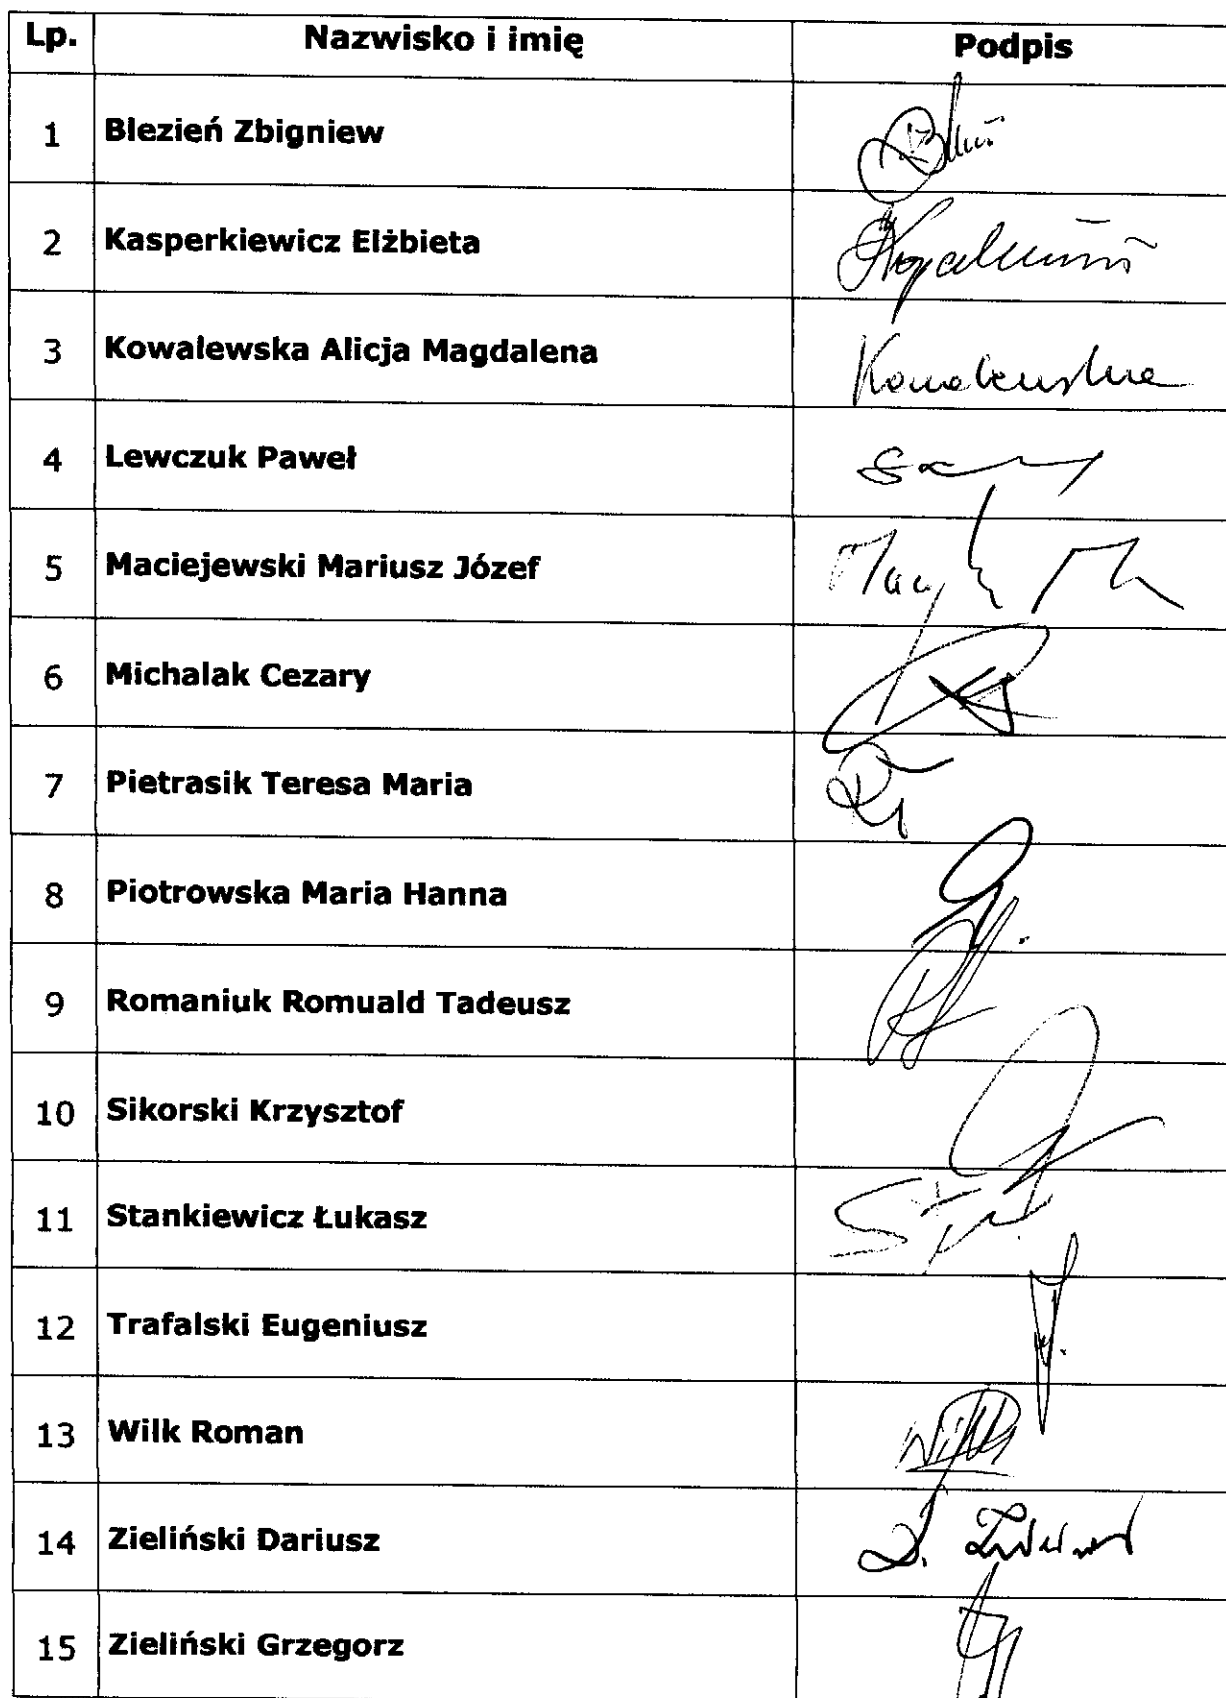 Lp. Nazwisko i imię Podpis
1 Blezień Zbigniew
2 Kasperkiewicz Elżbieta
3 Kowalewska Alicja Magdalena Kowalewska
4 Lewczuk Paweł
5 Maciejewski Mariusz Józef
6 Michalak Cezary
7 Pietrasik Teresa Maria
8 Piotrowska Maria Hanna
9 Romaniuk Romuald Tadeusz
10 Sikorski Krzysztof
11 Stankiewicz Łukasz
12 Trafalski Eugeniusz
13 Wilk Roman
14 Zieliński Dariusz
15 Zieliński Grzegorz